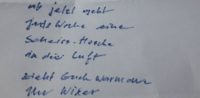 ab jetzt geht
jede Woche eine
Scheiss-Moschee
in die Luft
zieht Euch warm an
Ihr Wixer